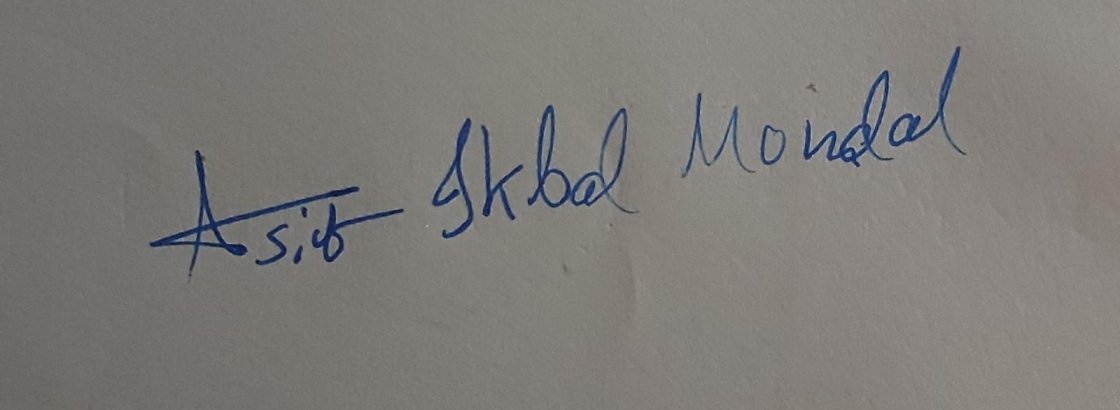 Asif Ikbal Mondal